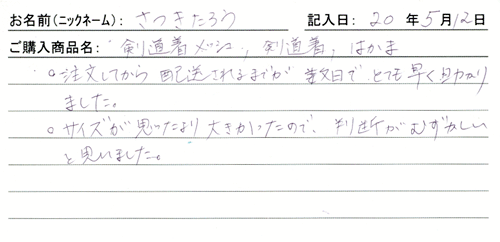 お名前(ニックネーム): さつきたろう 記入日: 20 年 5 月 12 日
ご購入商品名: 剣道着メッシュ, 剣道着, はかま
○注文してから 配送されるまでが 数日で とても早く助かり
ました。
○サイズが思ったより大きかったので、判断がむずかしい
と思いました。